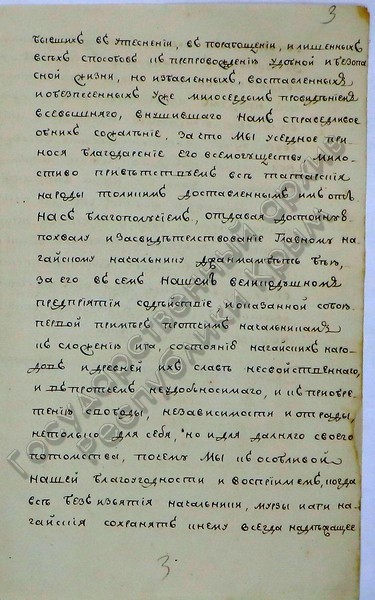 3
бывшихъ въ утесненіи, въ порабощеніи, и лишенныхъ
всѣхъ способовъ къ препровожденію удобной и безопа
сной жизни, но избавленныхъ, возставленныхъ
и обезпеченныхъ уже милосердымъ провидѣніемъ
всевышняго, внушившаго Намъ справедливое
объ нихъ сожаленіе. За что Мы усердное при-
нося благодареніе его всемогуществу, мило-
стиво привѣтствуемъ всѣ татарскія
народы толикимъ доставленнымъ имъ отъ
Насъ благополучіемъ, отдавая достойную
похвалу и засвидѣтельствованіе Главному на-
гайскому начальнику Джанмамбетъ Бею,
за его въ семъ Нашемъ великодушномъ
предпріятіи содѣйствіе и оказанной собою
первой примѣръ протчимъ начальникамъ
къ сложенію ига, состоянія нагайскихъ наро-
довъ и древней ихъ славѣ несвойственнаго,
и въ протчемъ неудобьносимаго, и къ пріобре-
тенію свободы, независимости и отрады,
не только для себя, но и для дальняго своего
потомства, почему Мы къ особливой
Нашей благоугодности и воспріимемъ, когда
всѣ безъ изъятія начальники, мурзы и аги на-
гайскія сохранятъ къ нему всегда надлежащее
3.
Государственный архив
Республики Крым